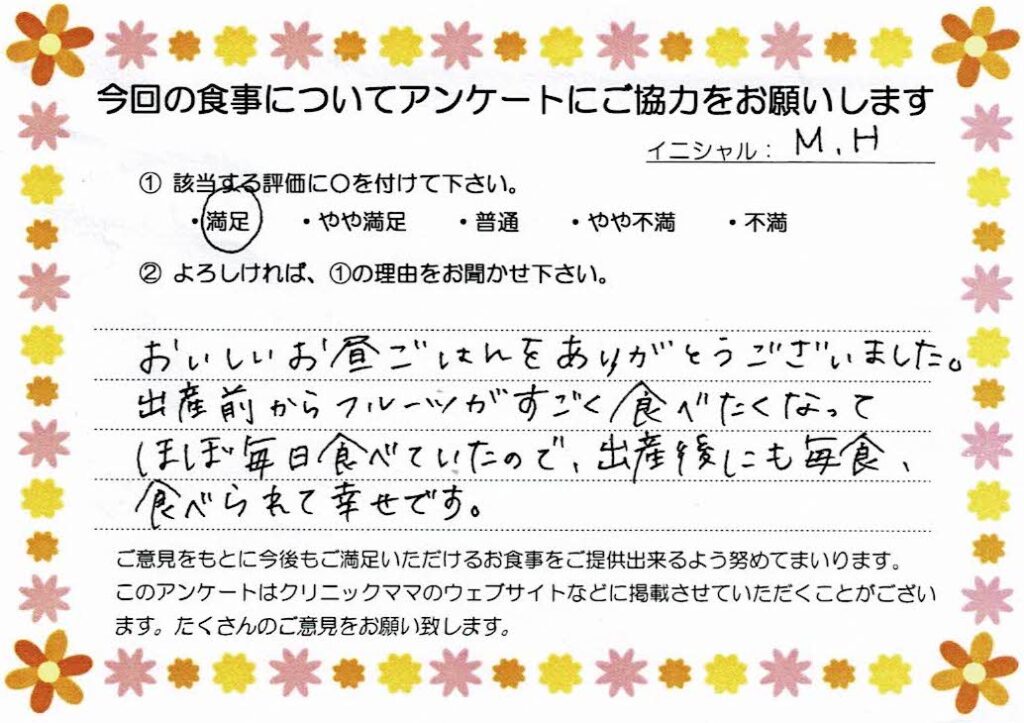 今回の食事についてアンケートにご協力をお願いします
イニシャル： M.H
① 該当する評価に○を付けて下さい。
・満足 ・やや満足 ・普通 ・やや不満 ・不満
② よろしければ、①の理由をお聞かせ下さい。
おいしいお昼ごはんをありがとうございました。
出産前からフルーツがすごく食べたくなって
ほぼ毎日食べていたので、出産後にも毎食、
食べられて幸せです。
ご意見をもとに今後もご満足いただけるお食事をご提供出来るよう努めてまいります。
このアンケートはクリニックママのウェブサイトなどに掲載させていただくことがござい
ます。たくさんのご意見をお願い致します。